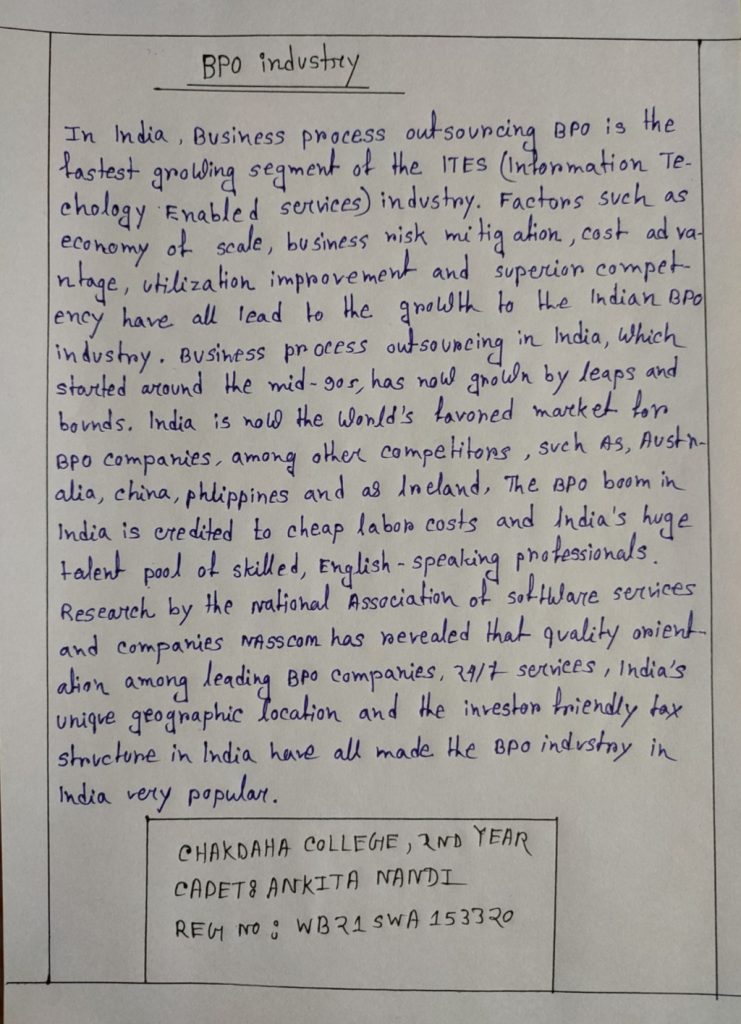 BPO industry
In India, Business process outsourcing BPO is the
fastest growing segment of the ITES (Information Te-
chology Enabled services) industry. Factors such as
economy of scale, business risk mitigation, cost adva-
ntage, utilization improvement and superior compet-
ency have all lead to the growth to the Indian BPO
industry. Business process outsourcing in India, which
started around the mid-90s, has now grown by leaps and
bounds. India is now the world's favored market for
BPO companies, among other competitors, such As, Austr-
alia, china, phlippines and as Ireland, The BPO boom in
India is credited to cheap labor costs and India's huge
talent pool of skilled, English-speaking professionals.
Research by the National Association of software services
and companies NASSCOM has revealed that quality orient-
ation among leading BPO companies, 24/7 services, India's
unique geographic location and the investor friendly tax
structure in India have all made the BPO industry in
India very popular.
CHAKDAHA COLLEGE, 2ND YEAR
CADET: ANKITA NANDI
REG NO: WB21SWA153320